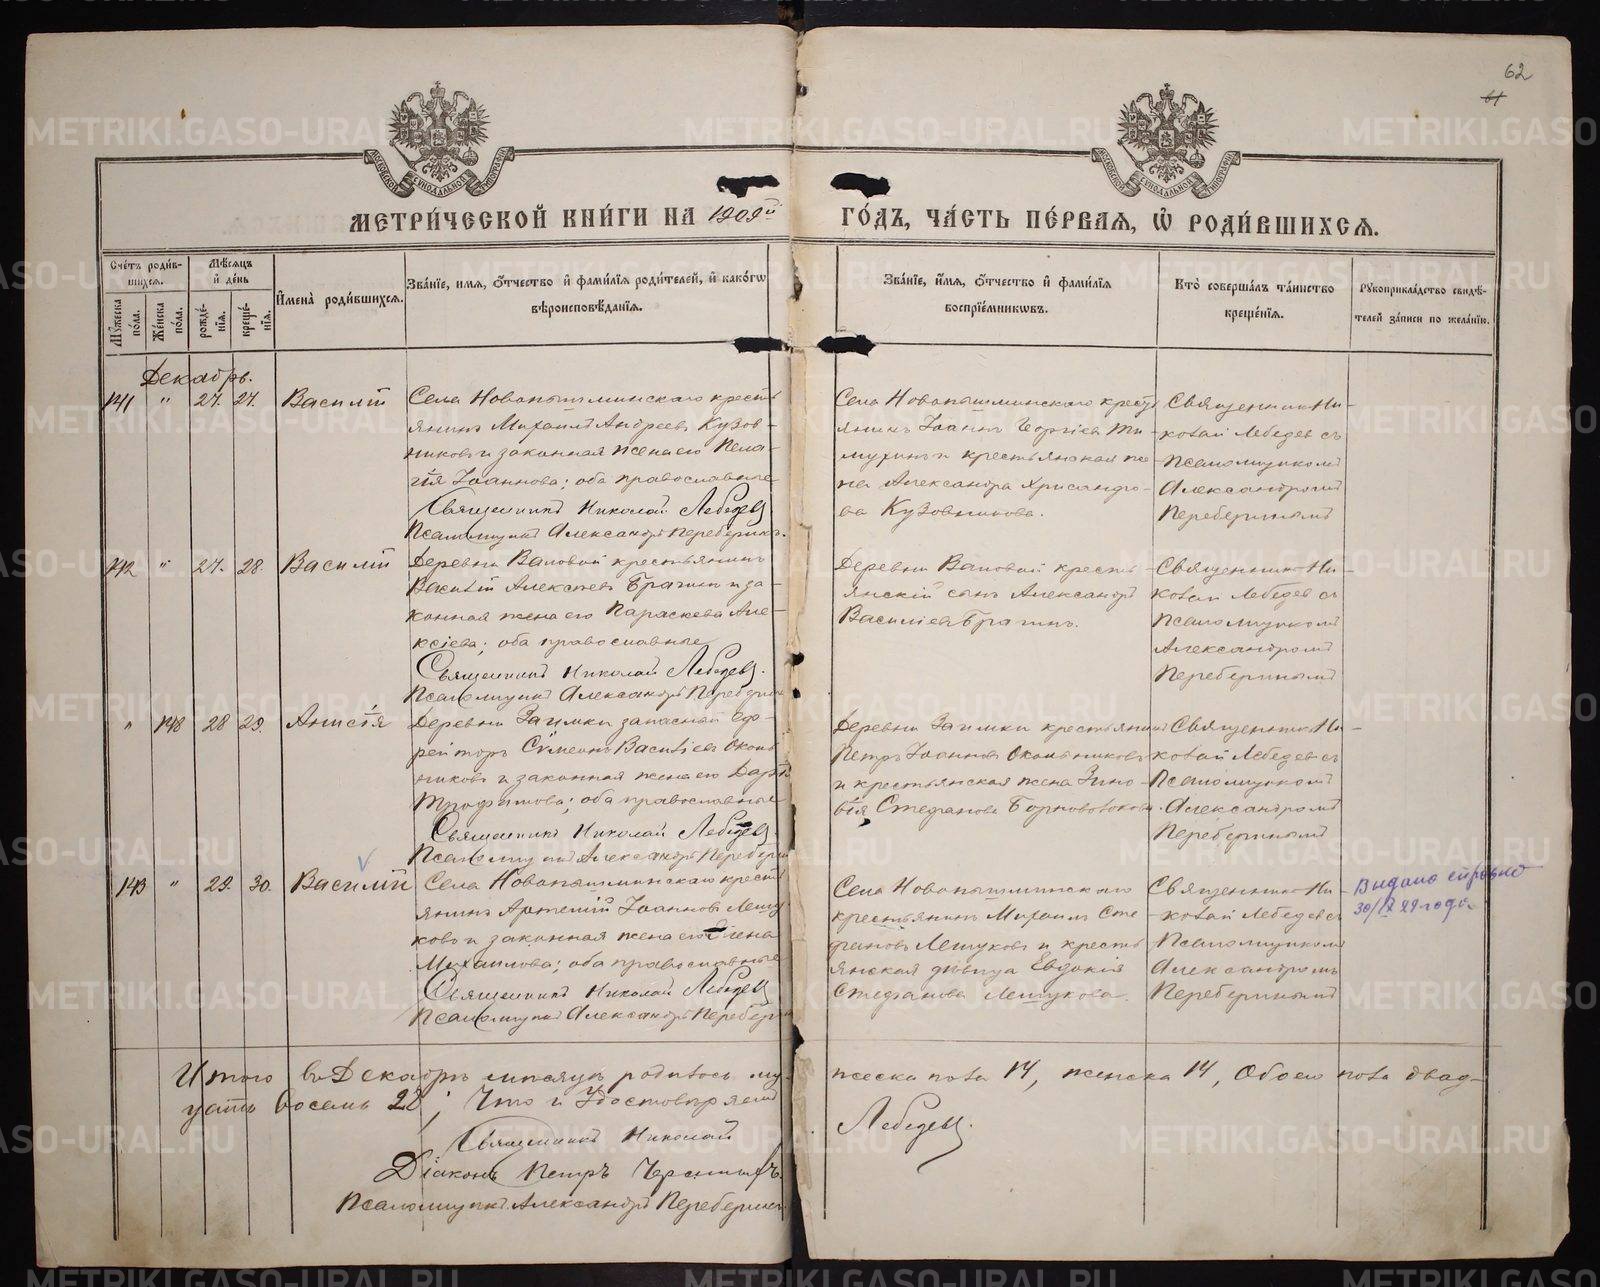 62
61
МОСКОВСКОЙ СѴНОДАЛЬНОЙ ТИПОГРАФІИ
МОСКОВСКОЙ СѴНОДАЛЬНОЙ ТИПОГРАФІИ
МЕТРИ́ЧЕСКОЙ КНИ́ГИ НА 1909й ГО́ДЪ, ЧА́СТЬ ПЕ́РВАЯ, Ѡ҆ РОДИ́ВШИХСЯ.
Сче́тъ роди́вшихся.
Му́жеска по́ла.
Же́нска по́ла.
Мѣ́сяцъ и҆ де́нь
рожде́нїя.
креще́нїя.
И҆мена̀ роди́вшихся.
Зва́нїе, и҆мя, ѻ҆́тчество и҆ фами́лїя роди́телей, и҆ како́гѡ
вѣроисповѣ́данїя.
Зва́нїе, и҆́мя, ѻ҆́тчество и҆ фами́лїя
воспрїе́мникѡвъ.
Кто̀ соверша́лъ та́инство
креще́нїя.
Рꙋкоприкла́дство свидѣ́-
телей за́писи по жела́нїю.
Декабрь.
141 " 27. 27. Василій
Села Новопышминскаго кресть
янинъ Михаилъ Андреевъ Кузов-
никовъ и законная жена его Пела-
гія Іоаннова; оба православные
Священникъ Николай Лебедевъ
Псаломщикъ Александръ Переберинъ.
Села Новопышминскаго кресть
янинъ Іоаннъ Георгіевъ Ти-
муринъ и крестьянская же-
на Александра Хрисанфо-
ва Кузовникова.
Священникъ Ни-
колай Лебедев съ
Псаломщикомъ
Александромъ
Переберинымъ
142 " 27. 28. Василій
Деревни Валовой крестьянинъ
Василій Алексѣевъ Брагинъ и за-
конная жена его Параскева Але-
ксіева; оба православные
Священникъ Николай Лебедевъ.
Псаломщикъ Александръ Переберин
Деревни Валовой кресть-
янскій сынъ Александръ
Василіевъ Брагинъ.
Священникъ Ни-
колай Лебедев съ
Псаломщикомъ
Александромъ
Переберинымъ
" 148 28 29. Анисія
Деревни Заимки запасный еф-
рейторъ Сѵмеонъ Василіевъ Околь
никовъ и законная жена его Дарья
Трофимова; оба православные
Священникъ Николай Лебедевъ.
Псаломщикъ Александръ Перебери
Деревни Заимки крестьянинъ
Петръ Іоанновъ Окольниковъ
и крестьянская жена Зино-
вія Стефанова Боровоlокова.
Священникъ Ни-
колай Лебедев съ
Псаломщикомъ
Александромъ
Переберинымъ
143 " 29. 30. Василій
Села Новопышминскаго кресть
янинъ Артемій Іоанновъ Лешу
ковъ и законная жена его Елена
Михаилова; оба православные
Священникъ Николай Лебедевъ
Псаломщикъ Александръ Перебер
Села Новопышминскаго
крестьянинъ Михаилъ Сте
фановъ Лешуковъ и кресть
янская дѣвица Евдокія
Стефанова Лешукова.
Священникъ Ни-
колай Лебедев съ
Псаломщикомъ
Александромъ
Переберинымъ
Выдано справка
30/X 29 года.
Итого въ Декабрѣ мѣсяцѣ родилось му-жеска пола 14, женска 14, обоего пола двад-
цать восемь 28; Что и удостовѣряемъ
Священникъ Николай Лебедевъ.
Діаконъ Петръ
Псаломщикъ Александръ Переберинъ